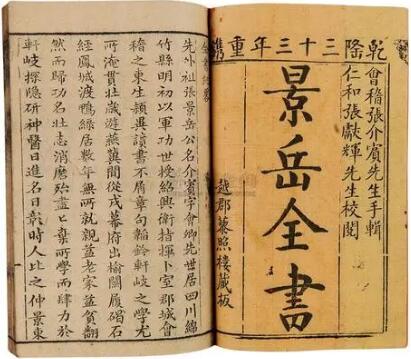 乾隆三十三年重鐫
會稽張介賓先生手輯
仁和張獻輝先生校閱
景岳全書
越郡藜照樓藏板
先外祖張景岳公名介賓字會卿先世居四川綿
竹縣明初以軍功世授紹興衛指揮卜室郡城會
稽之東生穎異讀書不屑章句韜鈐軒岐之學尤
所淹貫壯歲遊燕冀間從戎幕府出榆關履碣石
經鳳城渡鴨綠居數年無所就親益老家益貧翻
然而歸功名壯志消磨殆盡々棄所學而肆力於
軒岐探隱研神醫日進名日彰時人比之仲景東